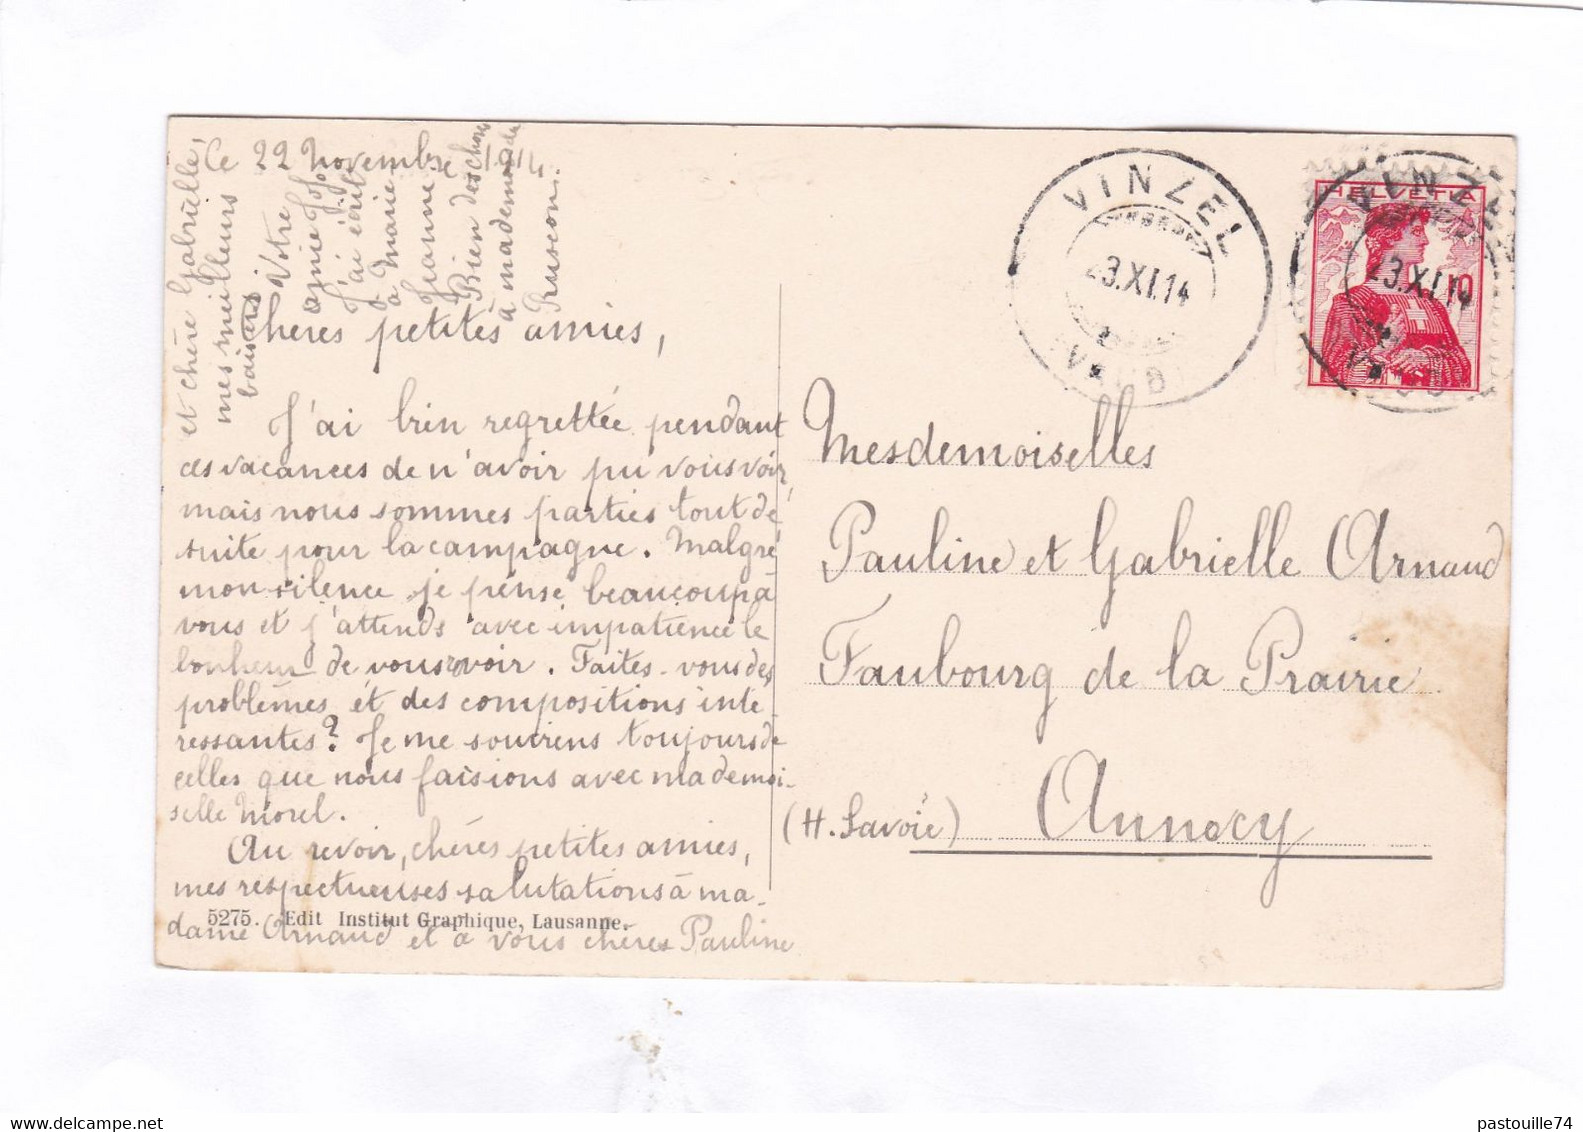 Ce 22 Novembre
Chères petites amies,
J'ai bien regrettée pendant
ces vacances de n'avoir pu vous voir,
mais nous sommes parties tout de
suite pour la campagne. Malgré
mon silence je pense beaucoup à
vous et j'attends avec impatience le
bonheur de vous revoir. Faites-vous des
problèmes et des compositions inté-
ressantes? Je me souviens toujours de
celles que nous faisions avec mademoi-
selle Morel.
Au revoir, chères petites amies,
mes respectueuses salutations à ma-
dame Arnaud et à vous chères Pauline
et chère Gabrielle,
mes meilleurs
baisers
Votre
amie
J'ai écrit
à Marie
Jeanne
Bien des choses
à mademoiselle
5275. Edit Institut Graphique, Lausanne.
VINZEL
23.XI.14
(VAUD)
HELVETIA
10
VINZEL
23.XI.14
Mesdemoiselles
Pauline et Gabrielle Arnaud
Faubourg de la Prairie
Annecy
(H. Savoie)
www.delcampe.net
pastouille74